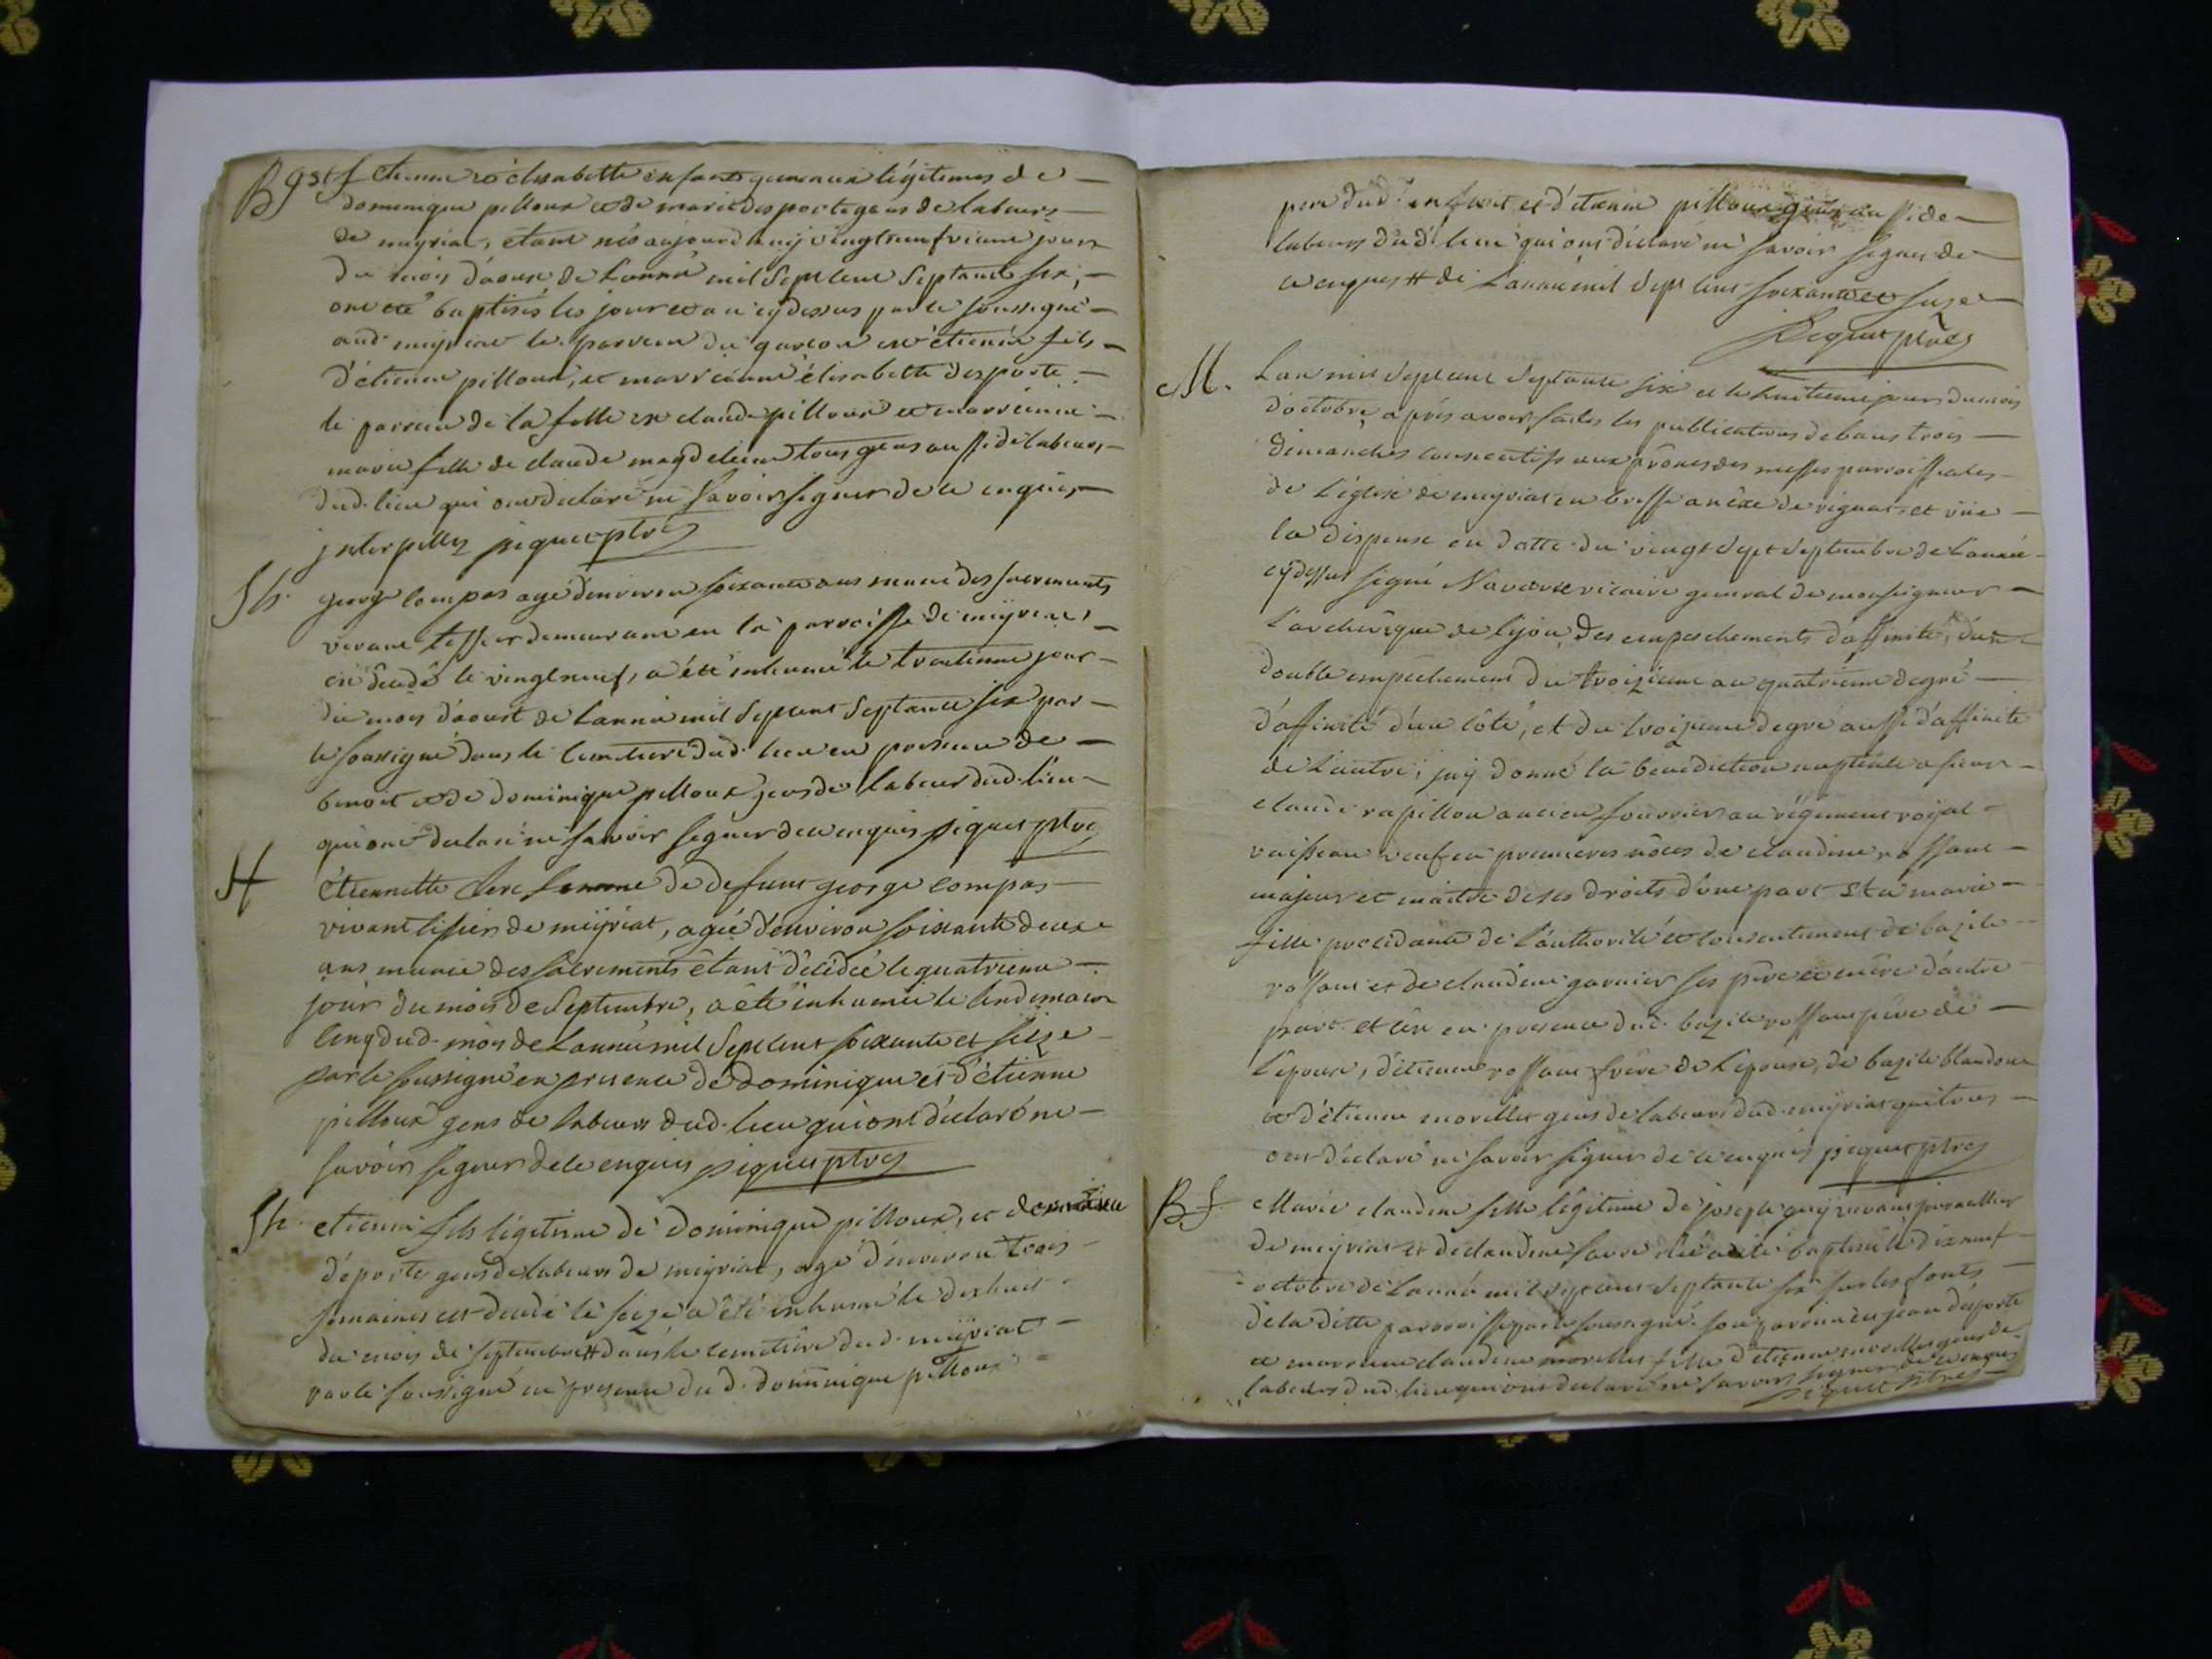 B g et f etienne et elisabette enfants gemeaux légitimes de
dominique pilloux et de marie desporte gens de labeurs
de meyriat, etant nés aujourd'huy vingt neufvieme jour
du mois d'aoust de L'année mil Sept cent Septante six,
ont été baptisés les jour et an cydessus par le soussigné
aud meyriat le parrein du garçon est étienne fils
d'étienne pilloux, et marreinne élisabette desporte
le parrein de la fille est claude pilloux et marreinne
marie fille de claude magdeleine tous gens aussi de labeurs
dud. lieu qui ont déclaré ne savoir signer de ce enquis
interpellés piquet ptre
Sh. george compas agé d'environ soixante ans muni des sacrements
vivant tissier demeurant en la parroisse de meyriat
est décédé le vingt neuf, a été inhumé le trentieme jour
du mois d'aoust de L'année mil Sept cent Septante six par
le soussigné dans le cimetiere dud. lieu en presence de
benoit et de dominique pilloux gens de labeur dud. lieu
qui ont declaré ne savoir signer de ce enquis piquet ptre
H étiennette clerc femme de defunt george compas
vivant tissier de meyriat, agée d'environ soixante deux
ans munie des sacrements étant décédée le quatrieme
jour du mois de Septembre, a été inhumée le lendemain
cinq dud. mois de L'année mil Sept cent soixante et seize
par le soussigné en presence de dominique et d'étienne
pilloux gens de labeurs dud. lieu qui ont déclaré ne
savoir signer de ce enquis piquet ptre
Sh. etienne fils légitime de dominique pilloux, et de marie
déporte gens de labeurs de meyriat, agé d'environ trois
semaines est décédé le seize a été inhumé le dixhuit
du mois de septembre # dans le cimetière dud. meyriat
par le soussigné en presence dud. dominique pilloux
pere dud. enfant et d'etienne pilloux gens aussi de
labeurs dud. lieu qui ont déclaré ne savoir signer de
ce enquis # de L'année mil Sept cent soixante et seize
Piquet ptre
M. L'an mil Sept cent Septante six et le huitieme jour du mois
d'octobre, après avoir faites les publications de bans trois
dimanches consecutifs aux prônes des messes parroissiales
de L'église de meyriat en bresse anexe de rignat, et vüe
la dispense en datte du vingt Sept Septembre de L'année
cydessus signé Navarre vicaire general de monseigneur
L'archevêque de lyon, des empeschements d'affinité, d'un
double empeschement du troizieme au quatrieme degré
d'affinité d'un côté, et du troizieme degré aussi d'affinité
de L'autre; j'ay donné la bénédiction nuptiale a sieur
claude rapillon ancien fourrier au régiment royal
vaisseau veuf en premieres nôces de claudine rossant
majeur et maitre de ses droits d'une part et a marie
fille procédante de l'authorité et consentement de bazile
rossant et de claudine garnier ses père et mère d'autre
part. et ce en presence dud. bazile rossant père de
L'epouse, d'étienne rossant frère de L'epouse, de bazile blandon
et d'étienne morellet gens de labeurs dud. meyriat qui tous
ont déclaré ne savoir signer de ce enquis piquet ptre
B f. Marie claudine fille légitime de joseph vivant
de meyriat et de claudine née a été baptisée le dixneuf
octobre de L'année mil Sept cent Septante six sur les fonts
de la ditte parroisse par le soussigné. son parrain est jean desporte
et marreinne claudine morellet fille d'etienne morellet gens de
labeurs dud. lieu qui ont declaré ne savoir signer de ce enquis
piquet ptre